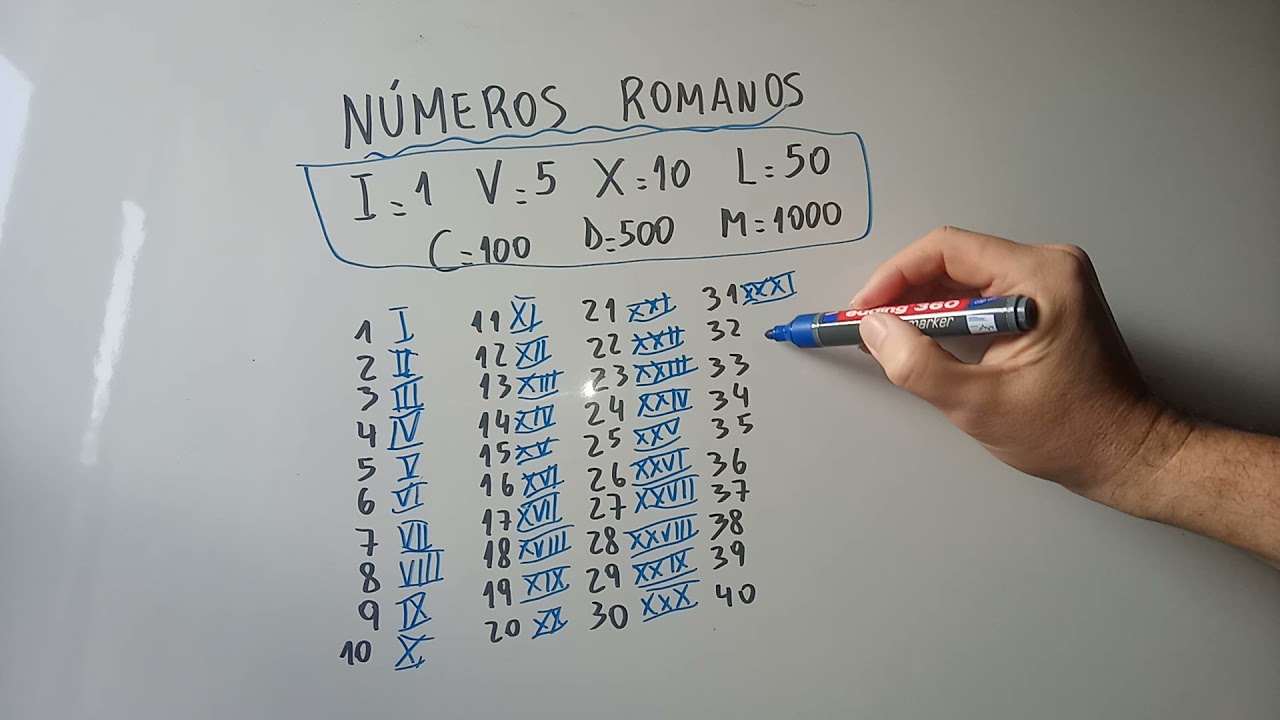 NÚMEROS ROMANOS
I=1 V=5 X=10 L=50
C=100 D=500 M=1000
1 I 11 XI 21 XXI 31 XXXI
2 II 12 XII 22 XXII 32
3 III 13 XIII 23 XXIII 33
4 IV 14 XIV 24 XXIV 34
5 V 15 XV 25 XXV 35
6 VI 16 XVI 26 XXVI 36
7 VII 17 XVII 27 XXVII 37
8 VIII 18 XVIII 28 XXVIII 38
9 IX 19 XIX 29 XXIX 39
10 X 20 XX 30 XXX 40
edding 360
marker